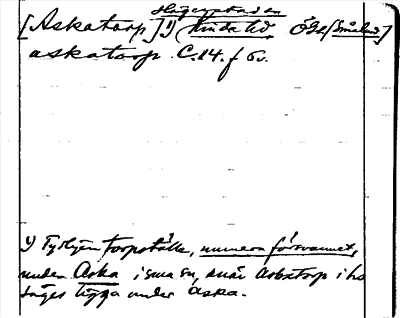 [Askatorp] 1) Kinda hd Ögl [Småland]
askatorp. C.14. f 6v.
1) Tydligen torpställe, numera försvunnet,
under Aska i sma sn, Askatorp i
säges ligga under Aska.